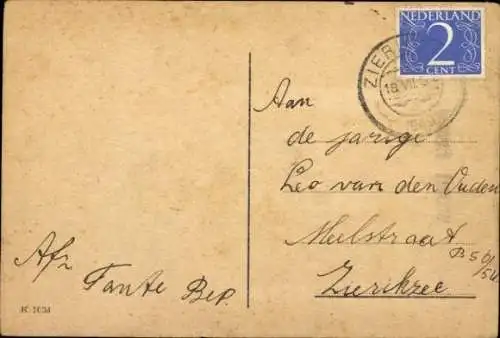 NEDERLAND
2
CENT
ZIER
18 VII
Aan
de jarige
Leo van den Ouden
Meelstraat
B 501
Zierikzee
Afz
Tante Bep.